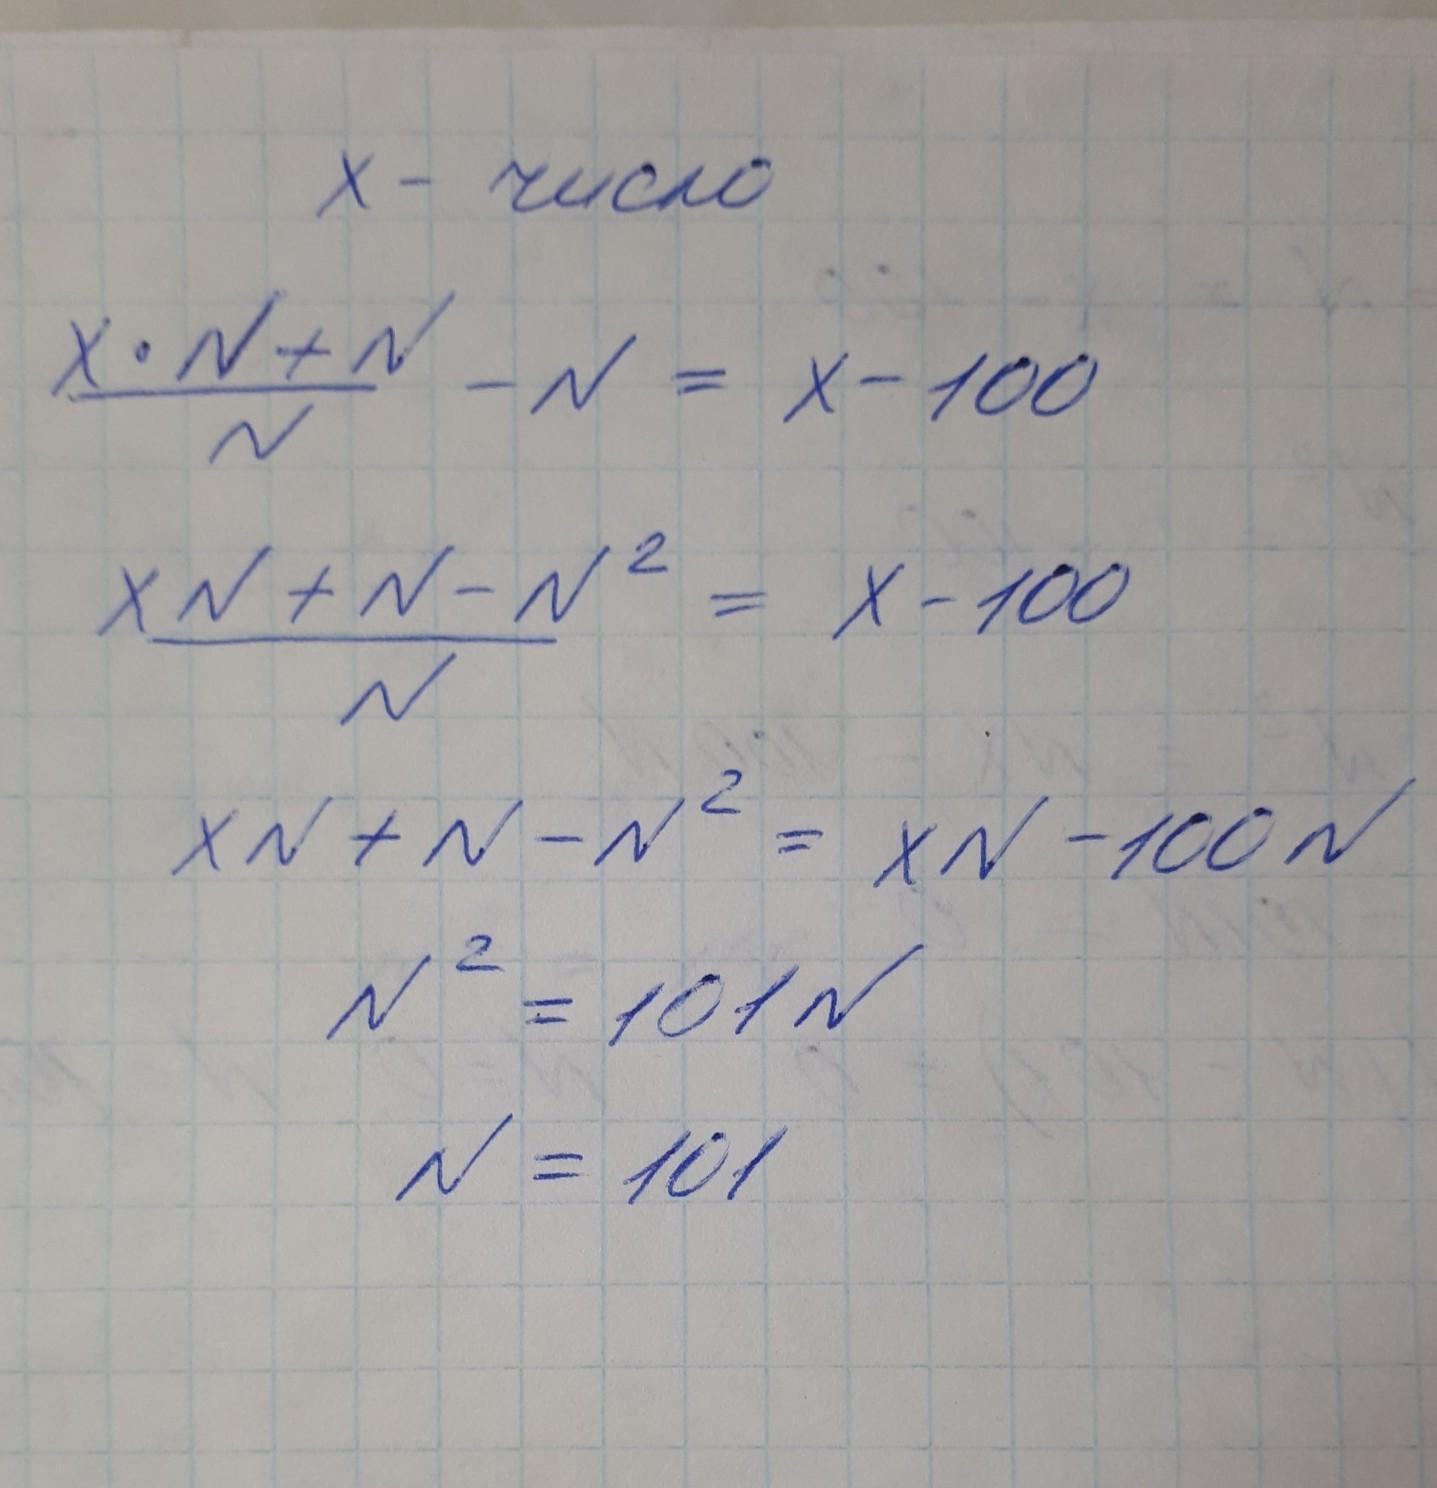 x - число
x · N + N / N - N = x - 100
xN + N - N² / N = x - 100
xN + N - N² = xN - 100N
N² = 101N
N = 101